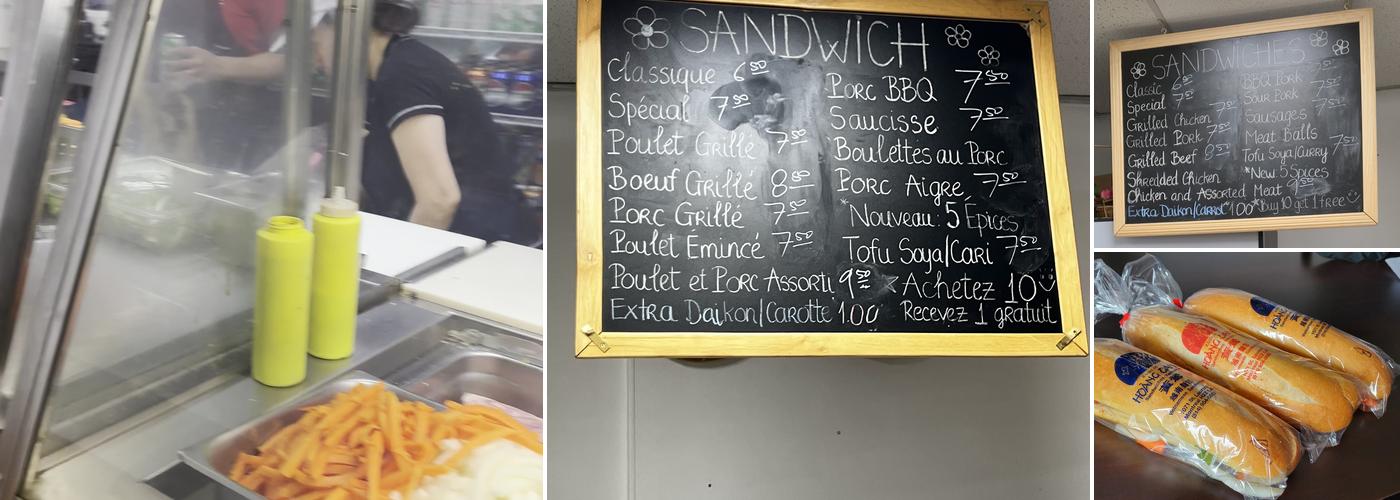 SANDWICH
Classique 6.50
Spécial 7.50
Poulet Grillé 7.50
Boeuf Grillé 8.00
Porc Grillé 7.50
Poulet Émincé 7.50
Poulet et Porc Assorti 9.50
Extra Daikon/Carotte 1.00
Porc BBQ 7.50
Saucisse 7.50
Boulettes au Porc
Porc Aigre 7.50
*Nouveau: 5 Épices
Tofu Soya/Cari 7.50
Achetez 10
Recevez 1 gratuit
SANDWICHES
Classic
Special
Grilled Chicken 7.50
Grilled Pork 7.50
Grilled Beef
Shredded Chicken
Chicken and Assorted Meat 9.50
Extra Daikon/Carrot 1.00
BBQ Pork
Sour Pork
Sausages 7.50
Meat Balls
Tofu Soya/Curry 7.50
*New: 5 Spices
*Buy 10 get 1 free
HOÀNG
HOÀNG
HOÀNG